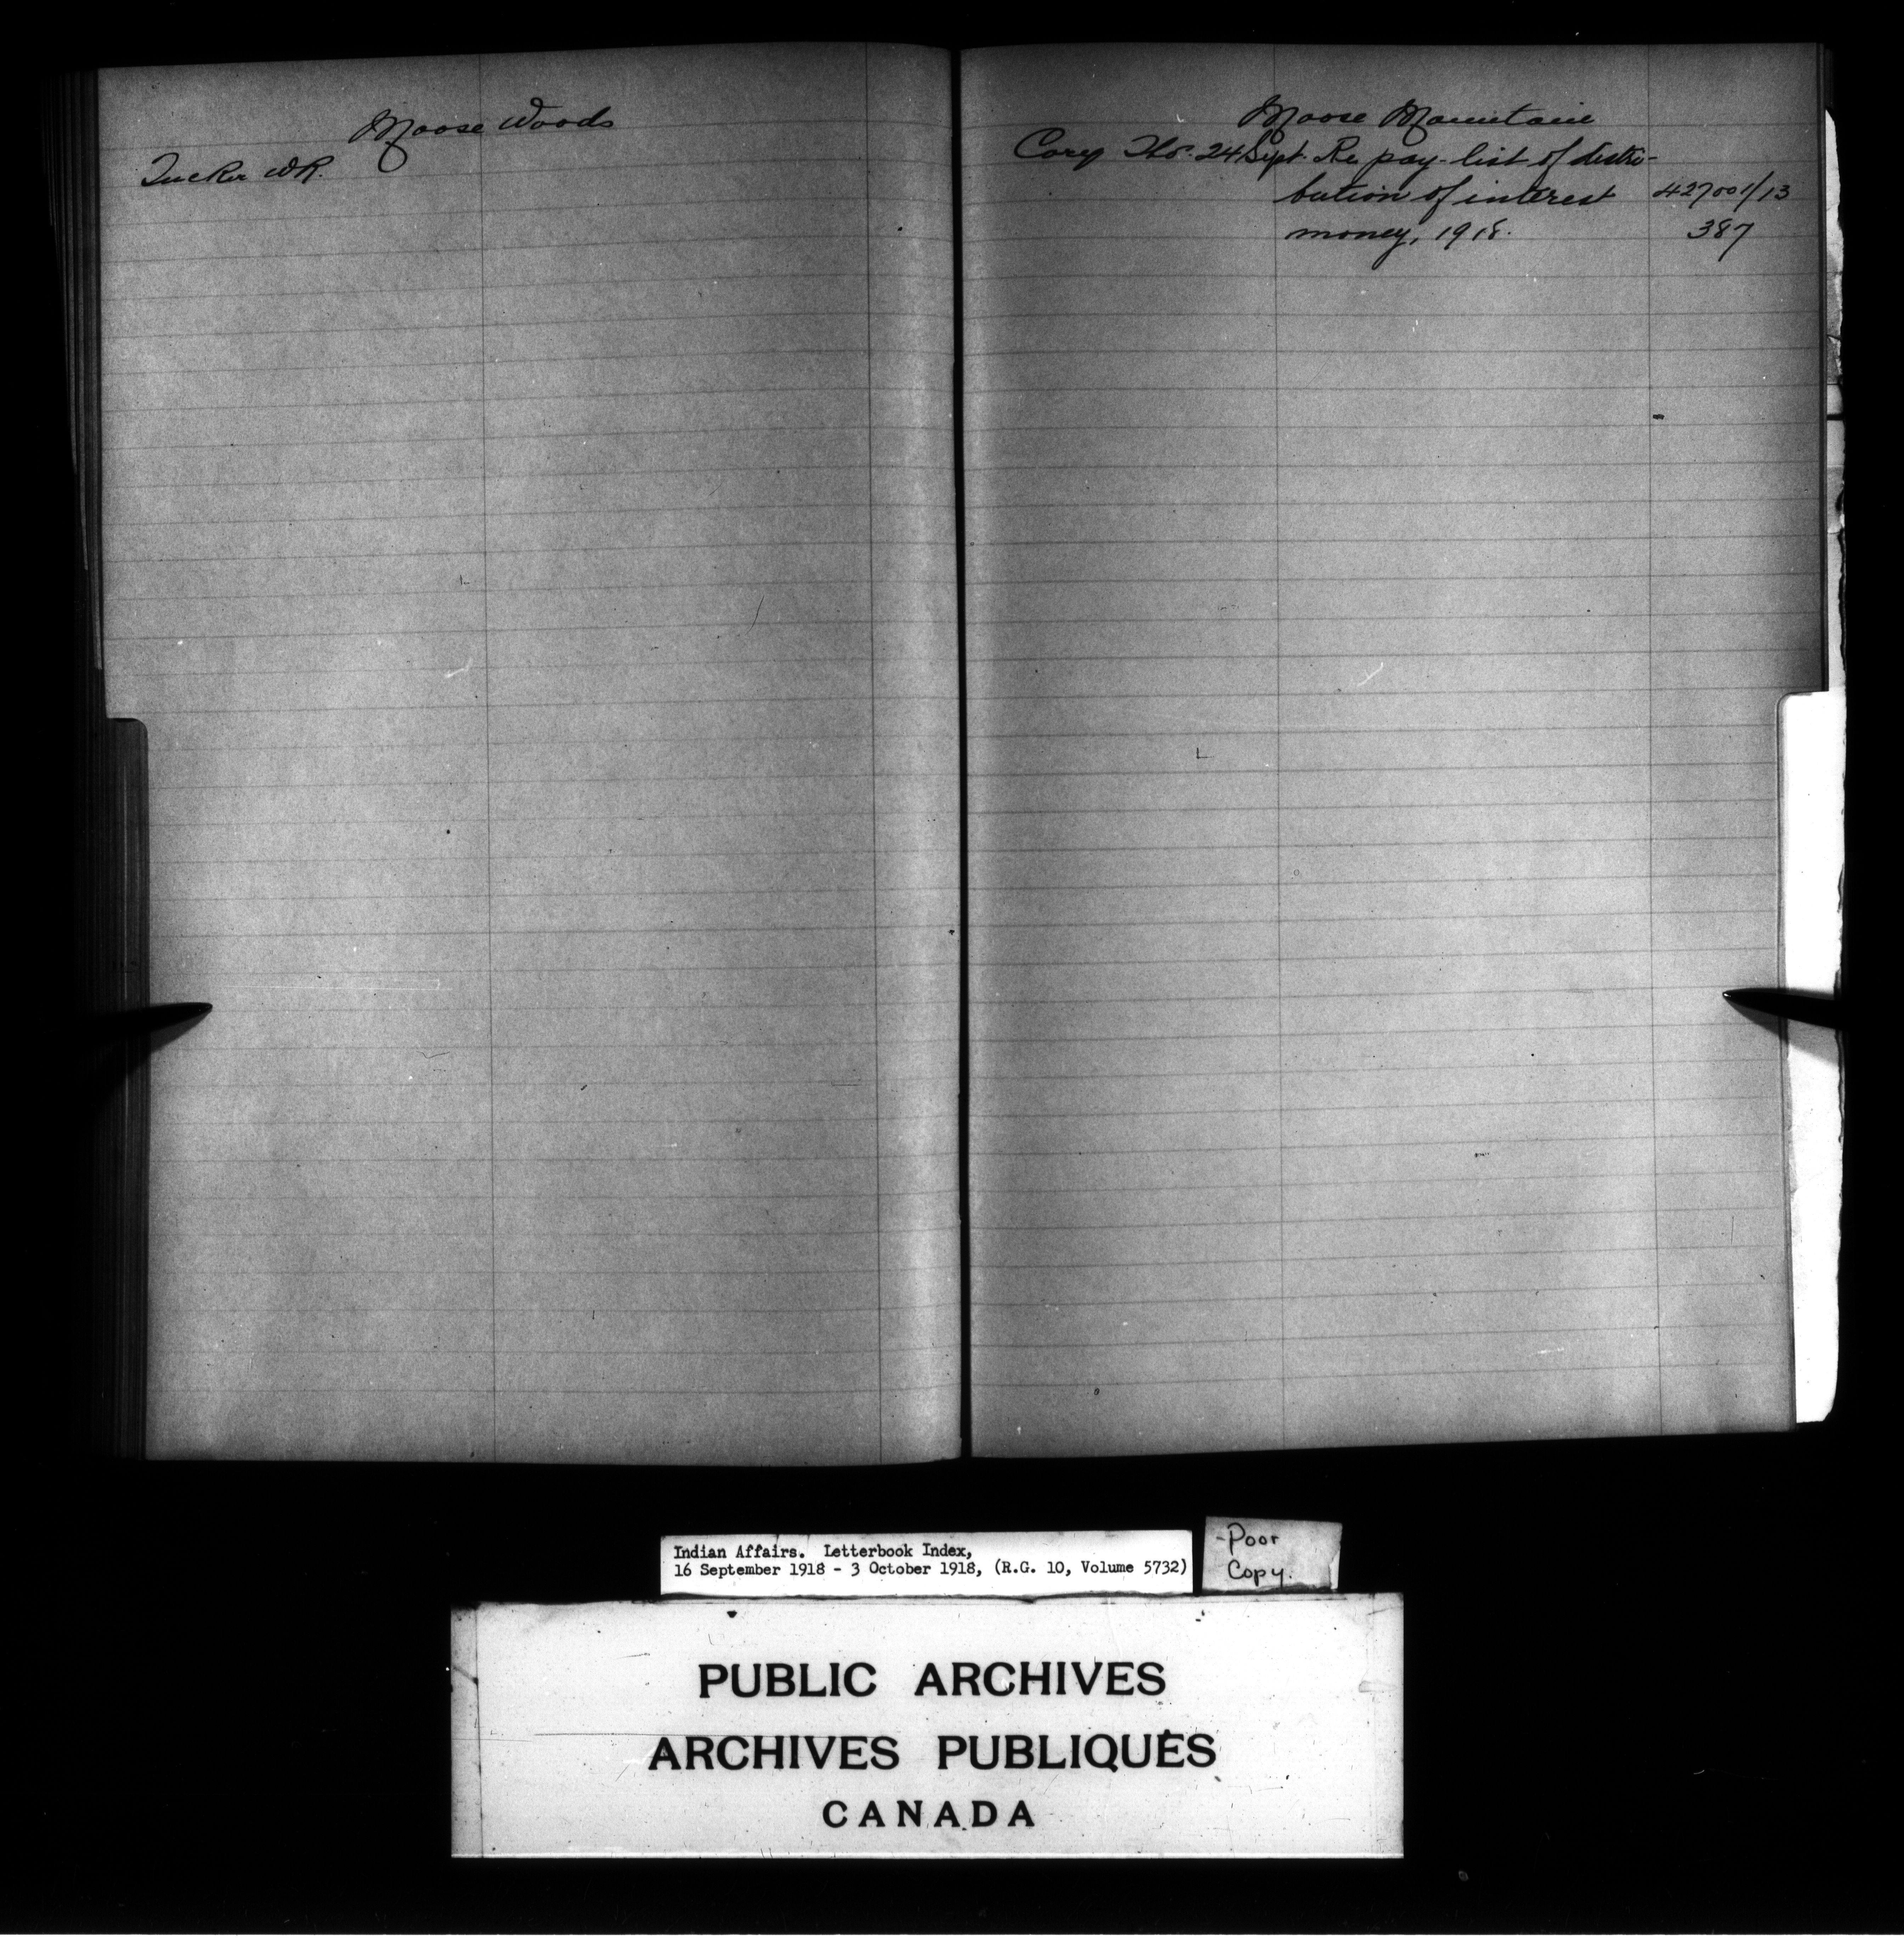 Moose Woods
Tucker W.R.
Moose Mountain
Cory Tho. 24 Sept. Re pay-list of distri-
bution of interest 427001/13
money, 1918. 387
Indian Affairs. Letterbook Index,
16 September 1918 - 3 October 1918, (R.G. 10, Volume 5732)
-Poor
Copy.
PUBLIC ARCHIVES
ARCHIVES PUBLIQUES
CANADA